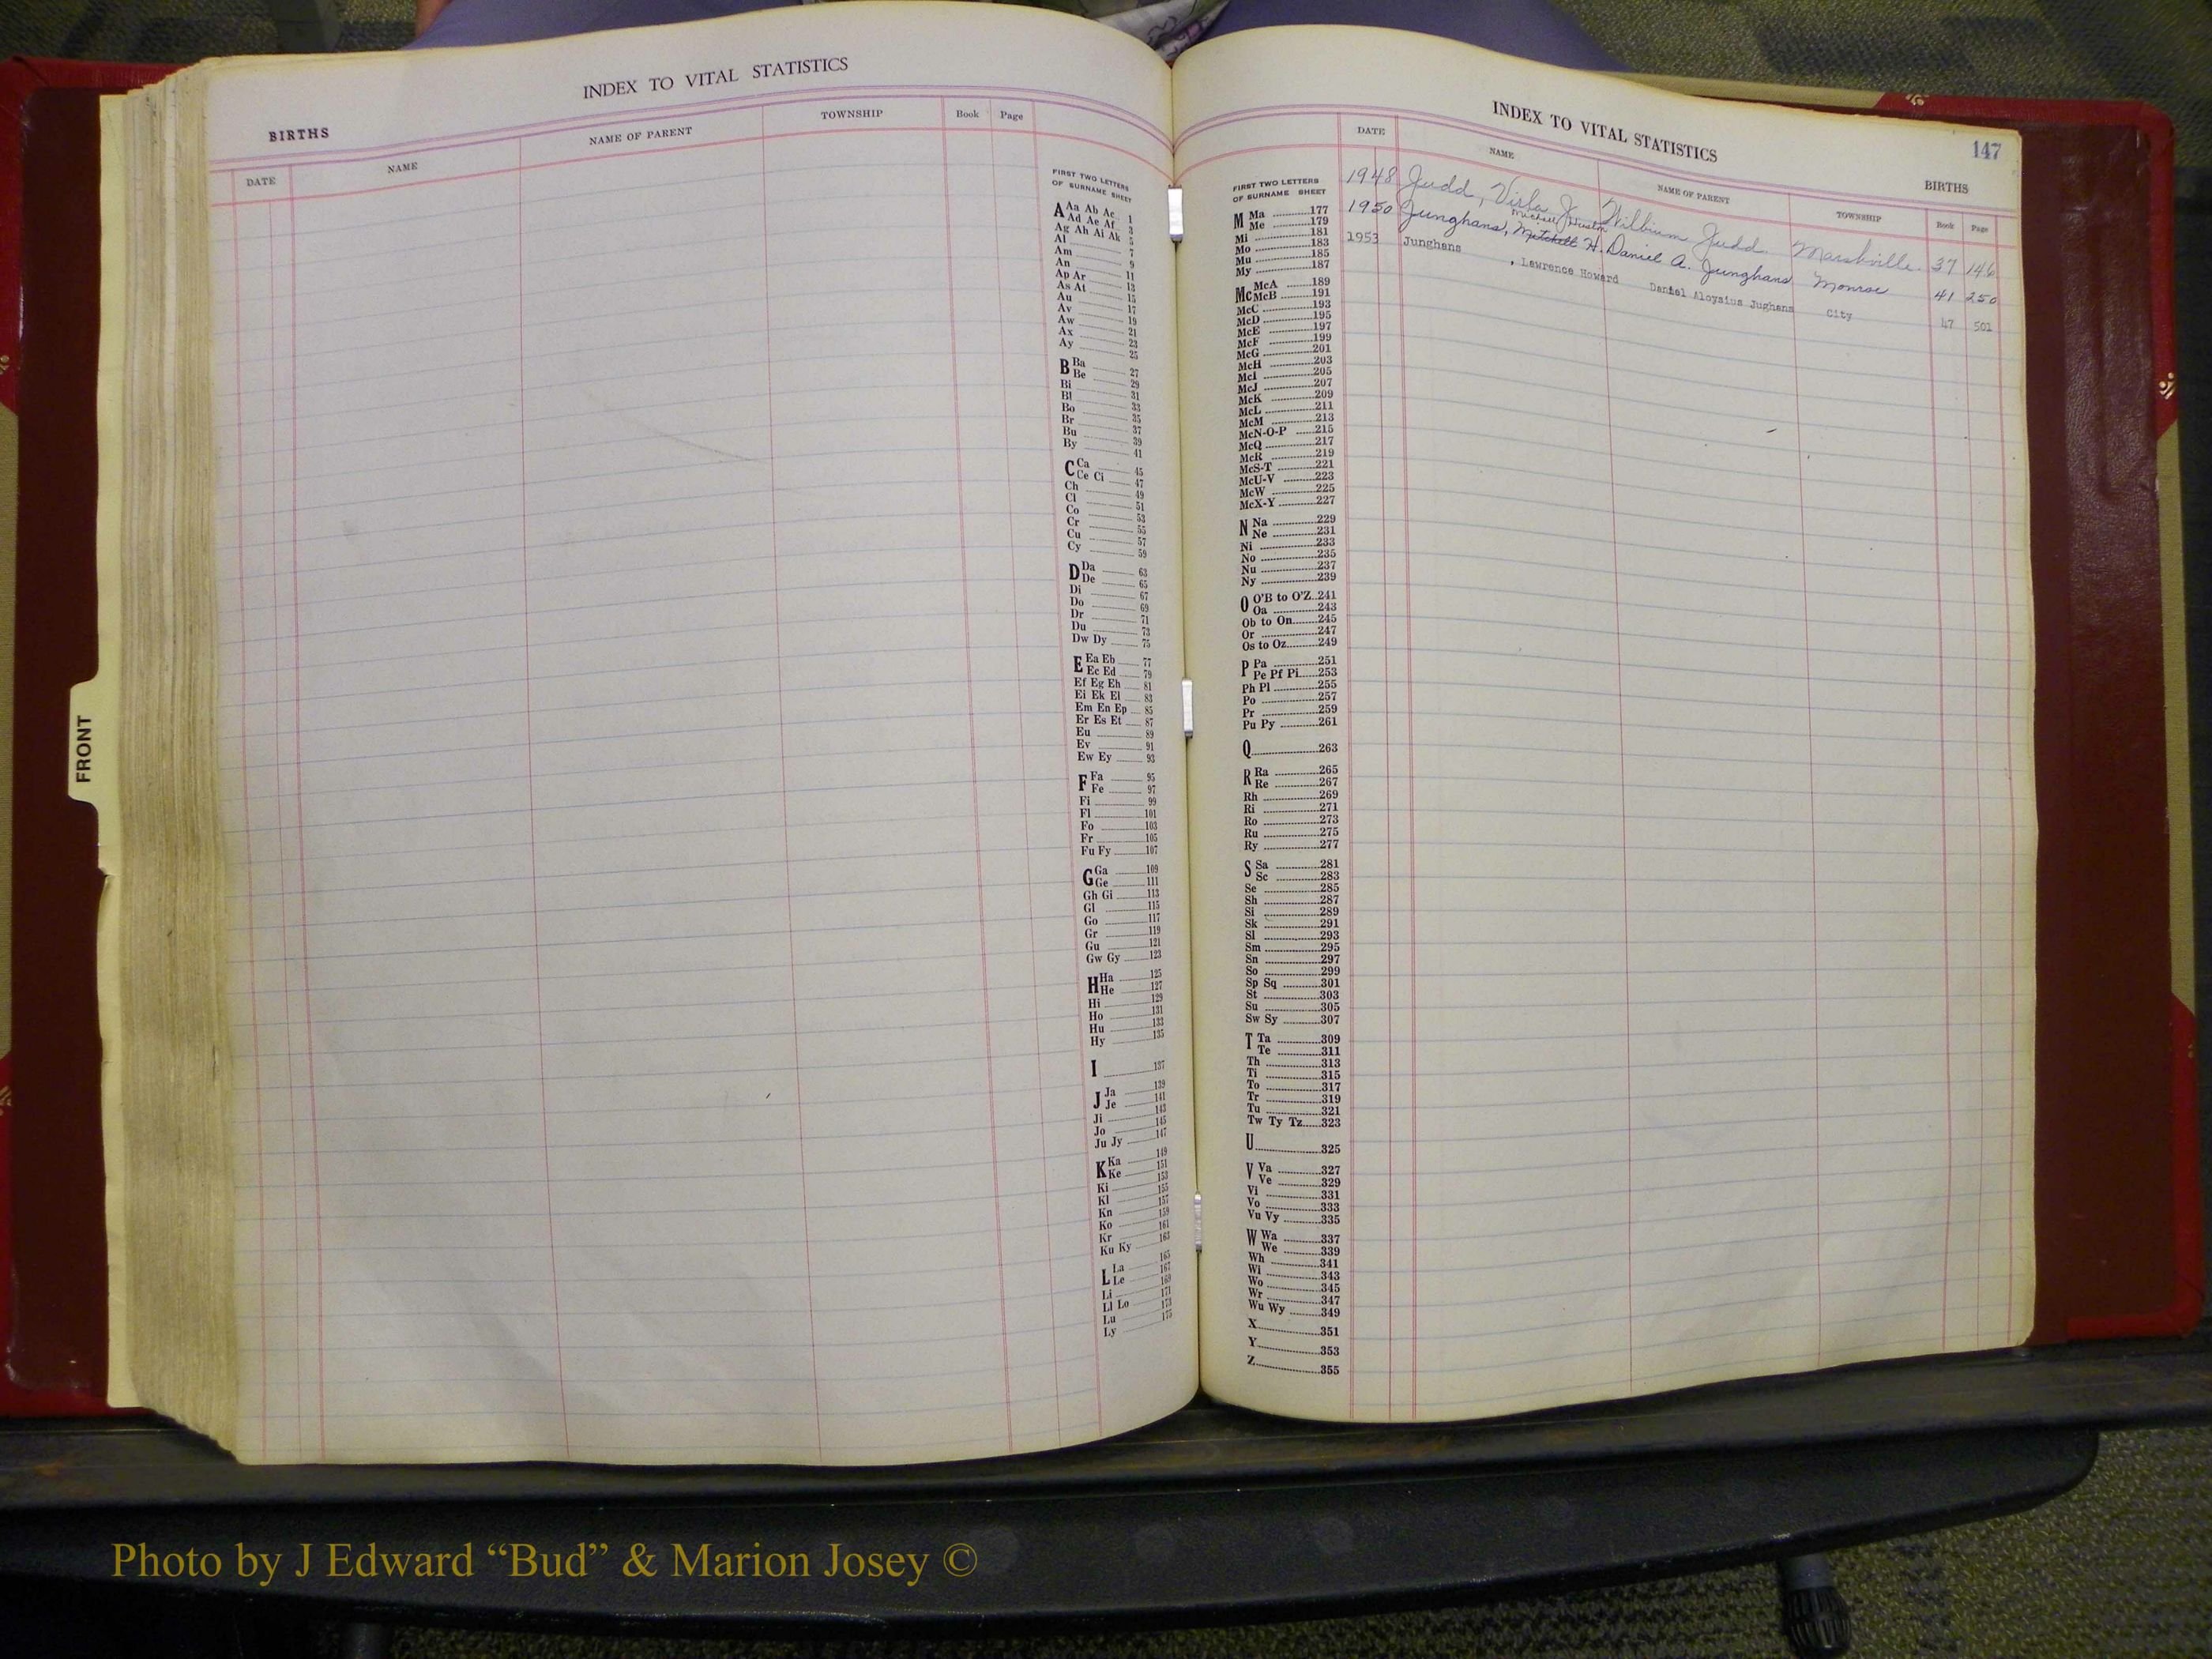 INDEX TO VITAL STATISTICS
BIRTHS
DATE NAME NAME OF PARENT TOWNSHIP Book Page
FIRST TWO LETTERS
OF SURNAME SHEET
A Aa Ab Ac 1
Ad Ae Af 3
Ag Ah Ai Ak 5
Al 7
Am 9
An 11
Ap Ar 13
As At 15
Au 17
Av 19
Aw 21
Ax 23
Ay 25
B Ba 27
Be 29
Bi 31
Bl 33
Bo 35
Br 37
Bu 39
By 41
C Ca 45
Ce Ci 47
Ch 49
Cl 51
Co 53
Cr 55
Cu 57
Cy 59
D Da 63
De 65
Di 67
Do 69
Dr 71
Du 73
Dw Dy 75
E Ea Eb 77
Ec Ed 79
Ef Eg Eh 81
Ei Ek El 83
Em En Ep 85
Er Es Et 87
Eu 89
Ev 91
Ew Ey 93
F Fa 95
Fe 97
Fi 99
Fl 101
Fo 103
Fr 105
Fu Fy 107
G Ga 109
Ge 111
Gh Gi 113
Gl 115
Go 117
Gr 119
Gu 121
Gw Gy 123
H Ha 125
He 127
Hi 129
Ho 131
Hu 133
Hy 135
I 137
J Ja 139
Je 141
Ji 143
Jo 145
Ju Jy 147
K Ka 149
Ke 151
Ki 153
Kl 155
Kn 157
Ko 159
Kr 161
Ku Ky 163
L La 165
Le 167
Li 169
Ll Lo 171
Lu 173
Ly 175
FRONT
INDEX TO VITAL STATISTICS
147
BIRTHS
DATE NAME NAME OF PARENT TOWNSHIP Book Page
1948 Judd, J. Judd Marshville 37 146
Michael
1950 Junghans, Mitchell H. Daniel A. Junghans Monroe 41 250
1953 Junghans, Lawrence Howard Daniel Aloysius Jughans City 47 501
FIRST TWO LETTERS
OF SURNAME SHEET
M Ma 177
Me 179
Mi 181
Mo 183
Mu 185
My 187
Mc McA 189
McB 191
McC 193
McD 195
McE 197
McF 199
McG 201
McH 203
McI 205
McJ 207
McK 209
McL 211
McM 213
McN-O-P 215
McQ 217
McR 219
McS-T 221
McU-V 223
McW 225
McX-Y 227
N Na 229
Ne 231
Ni 233
No 235
Nu 237
Ny 239
O O'B to O'Z 241
Oa 243
Ob to On 245
Or 247
Os to Oz 249
P Pa 251
Pe Pf Pi 253
Ph Pl 255
Po 257
Pr 259
Pu Py 261
Q 263
R Ra 265
Re 267
Rh 269
Ri 271
Ro 273
Ru 275
Ry 277
S Sa 281
Sc 283
Se 285
Sh 287
Si 289
Sk 291
Sl 293
Sm 295
Sn 297
So 299
Sp Sq 301
St 303
Su 305
Sw Sy 307
T Ta 309
Te 311
Th 313
Ti 315
To 317
Tr 319
Tu 321
Tw Ty Tz 323
U 325
V Va 327
Ve 329
Vi 331
Vo 333
Vu Vy 335
W Wa 337
We 339
Wh 341
Wi 343
Wo 345
Wr 347
Wu Wy 349
X 351
Y 353
Z 355
Photo by J Edward “Bud” & Marion Josey ©